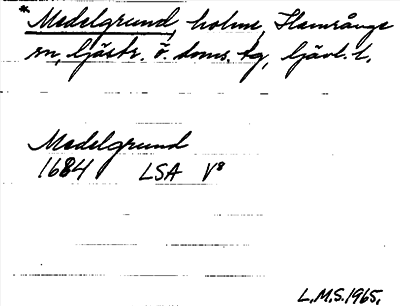 *Medelgrund, holme, Hamrånge
sn, Gästr. ö. doms. tg, Gävl. l.
Medelgrund
1684 LSA V8
L.M.S. 1965.